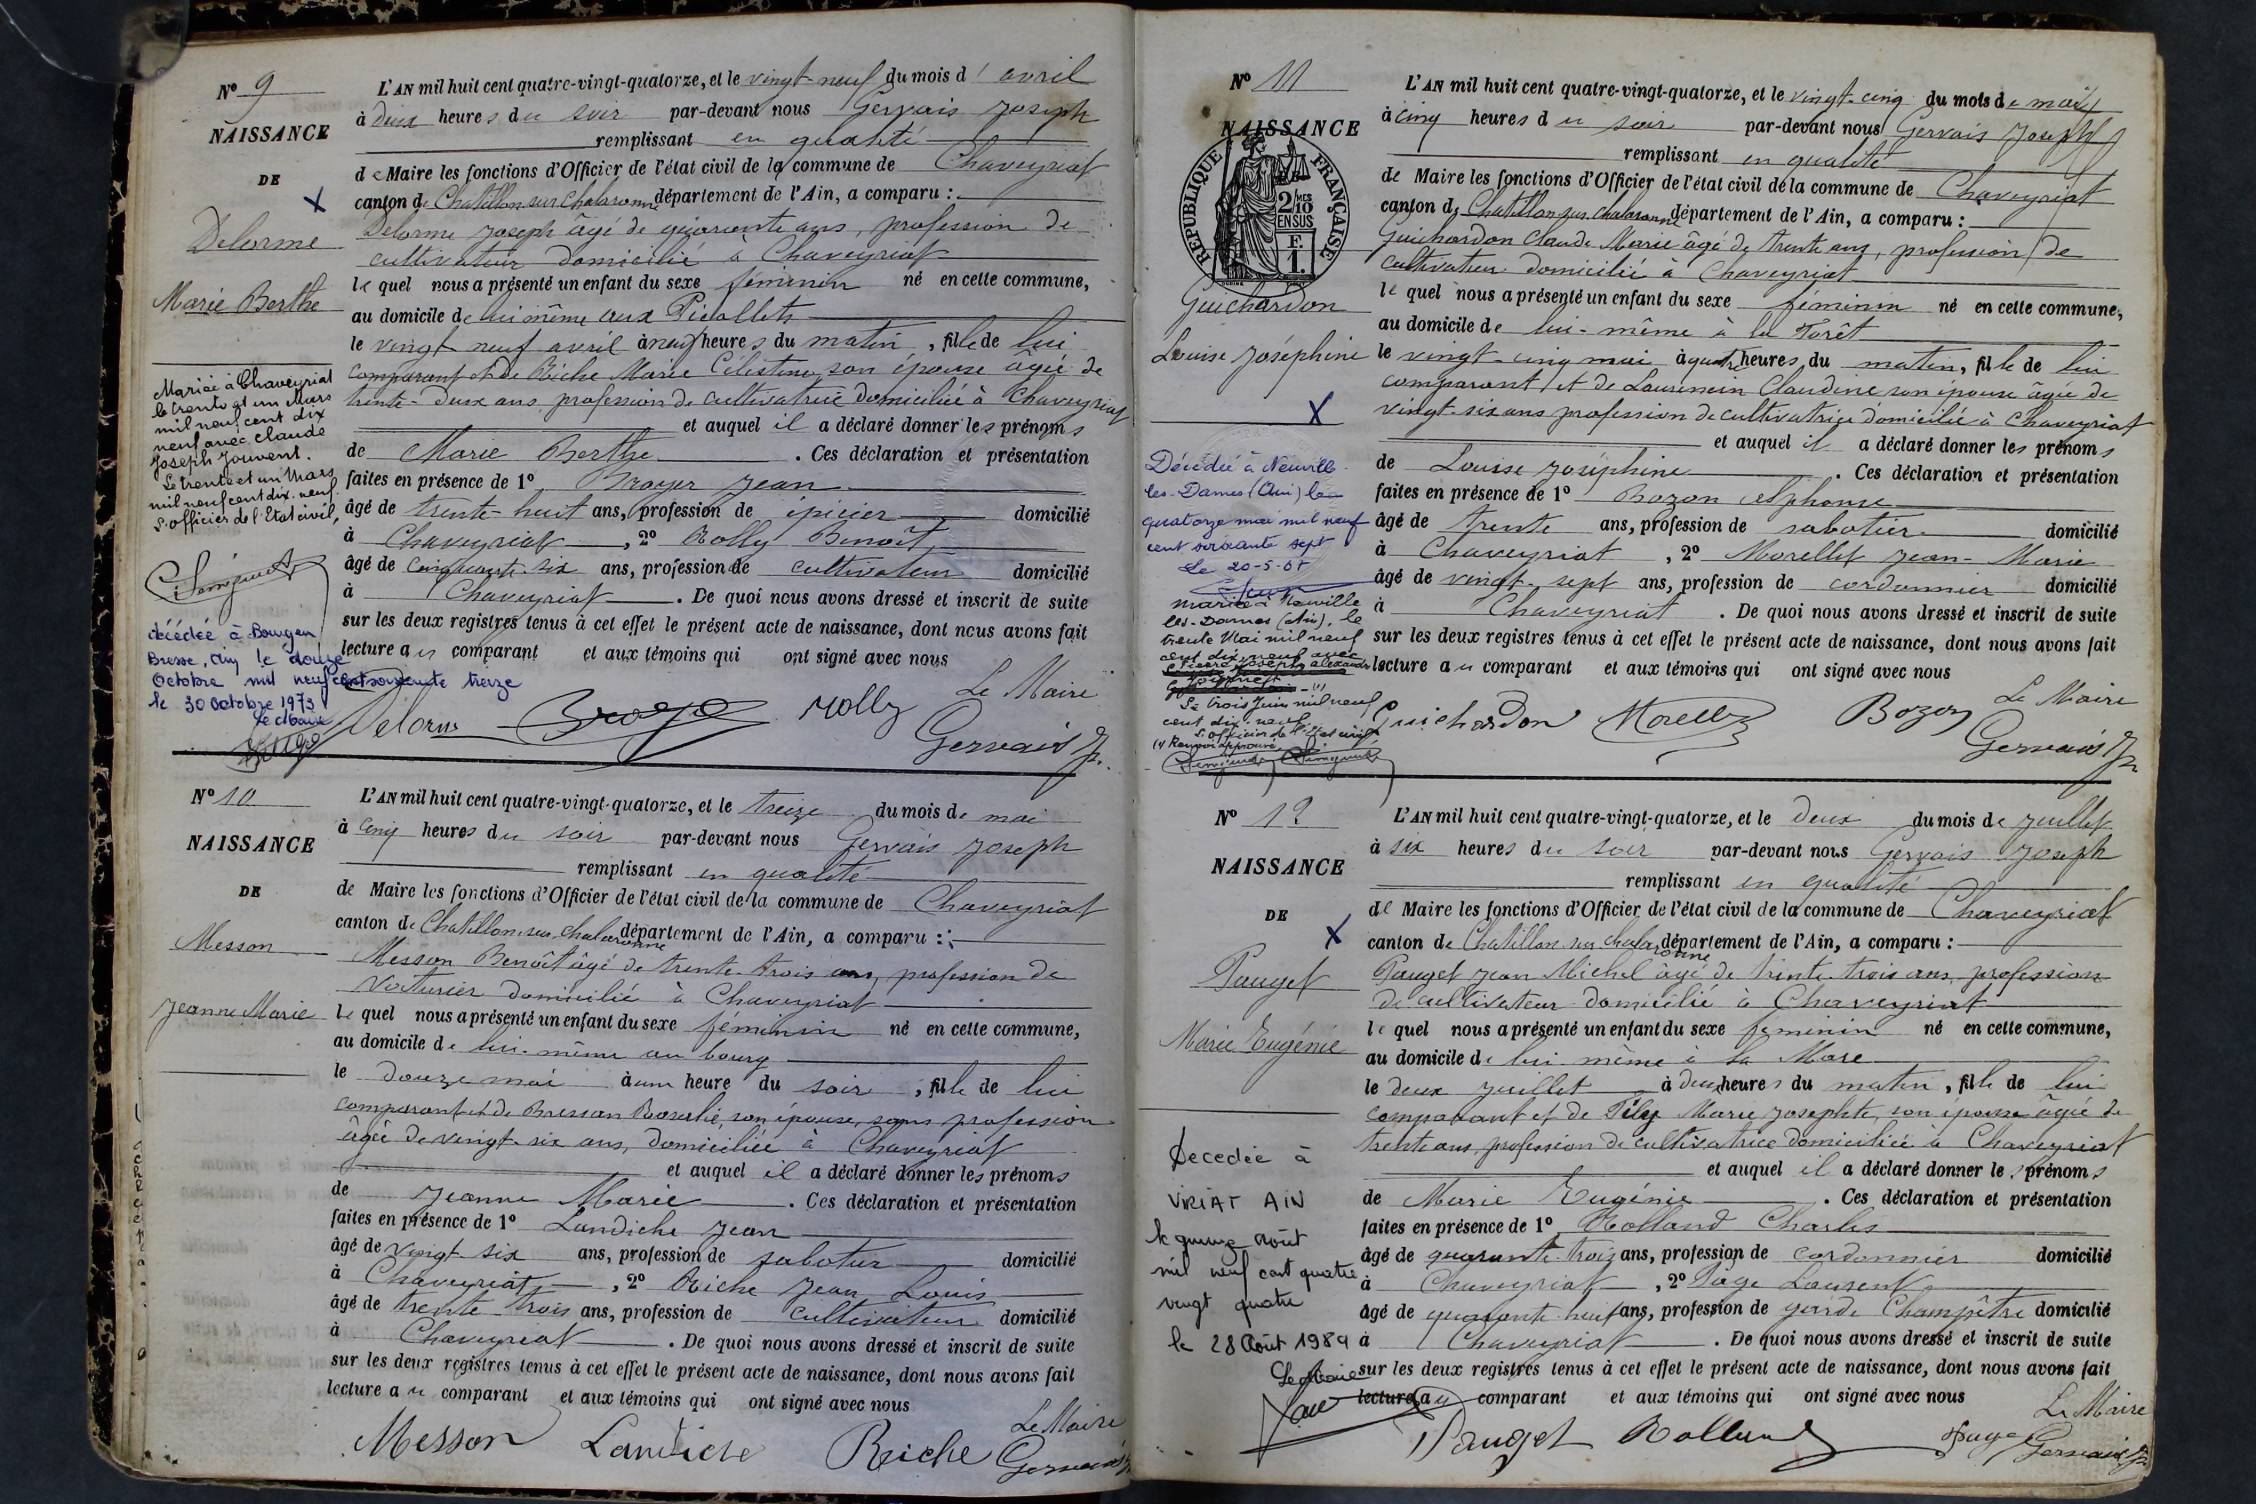 N° 9
NAISSANCE
DE
Delorme
Marie Berthe
Mariée à Chaveyriat
le trente et un Mars
mil neuf cent dix
neuf avec Claude
Joseph Jouvent.
Le trente et un Mars
mil neuf cent dix-neuf.
L'officier de l'Etat civil,
décédée à Bourg en
Bresse, Ain le douze
Octobre mil neuf cent soixante treize
le 30 Octobre 1973
Le Maire
L'AN mil huit cent quatre-vingt-quatorze, et le vingt-neuf du mois d'avril
à deux heures du soir par-devant nous Gervais Joseph
remplissant en qualité
de Maire les fonctions d'Officier de l'état civil de la commune de Chaveyriat
canton de Chatillon sur Chalaronne département de l'Ain, a comparu :
Delorme Joseph âgé de quarante ans, profession de
cultivateur domicilié à Chaveyriat
lequel nous a présenté un enfant du sexe féminin né en cette commune,
au domicile de lui même aux Picollets
le vingt neuf avril à neuf heures du matin, fille de lui
comparant et de Riche Marie Célestine, son épouse âgée de
trente-deux ans, profession de cultivatrice domiciliée à Chaveyriat
et auquel il a déclaré donner les prénoms
de Marie Berthe. Ces déclaration et présentation
faites en présence de 1° Broyer Jean
âgé de trente-huit ans, profession de épicier domicilié
à Chaveyriat, 2° Rolly Benoît
âgé de cinquante-six ans, profession de cultivateur domicilié
à Chaveyriat. De quoi nous avons dressé et inscrit de suite
sur les deux registres tenus à cet effet le présent acte de naissance, dont nous avons fait
lecture au comparant et aux témoins qui ont signé avec nous
Le Maire
Delorme Broyer Rolly Gervais J.
N° 10
NAISSANCE
DE
Messon
Jeanne Marie
L'AN mil huit cent quatre-vingt-quatorze, et le treize du mois de mai
à cinq heures du soir par-devant nous Gervais Joseph
remplissant en qualité
de Maire les fonctions d'Officier de l'état civil de la commune de Chaveyriat
canton de Chatillon sur Chalaronne département de l'Ain, a comparu :
Messon Benoît âgé de trente-trois ans, profession de
Voiturier domicilié à Chaveyriat
lequel nous a présenté un enfant du sexe féminin né en cette commune,
au domicile de lui-même au bourg
le douze mai à une heure du soir, fille de lui
comparant et de Bressan Rosalie, son épouse, sans profession
âgée de vingt-six ans, domiciliée à Chaveyriat
et auquel il a déclaré donner les prénoms
de Jeanne Marie. Ces déclaration et présentation
faites en présence de 1° Landiche Jean
âgé de vingt six ans, profession de sabotier domicilié
à Chaveyriat, 2° Riche Jean Louis
âgé de trente trois ans, profession de cultivateur domicilié
à Chaveyriat. De quoi nous avons dressé et inscrit de suite
sur les deux registres tenus à cet effet le présent acte de naissance, dont nous avons fait
lecture au comparant et aux témoins qui ont signé avec nous
Le Maire
Messon Landiche Riche Gervais J.
N° 11
NAISSANCE
REPUBLIQUE FRANÇAISE
2/10MES EN SUS
F. 1.
Guichardon
Louise Joséphine
Décédée à Neuville-
les-Dames (Ain) le
quatorze mai mil neuf
cent soixante sept
Le 20-5-67
mariée à Neuville
les-Dames (Ain), le
trente Mai mil neuf
cent dix-neuf avec
Pierre Joseph Alexandre
Le trois Juin mil neuf
cent dix-neuf
L'officier de l'Etat civil
(1) Renvoi approuvé
L'AN mil huit cent quatre-vingt-quatorze, et le vingt-cinq du mois de mai
à cinq heures du soir par-devant nous Gervais Joseph
remplissant en qualité
de Maire les fonctions d'Officier de l'état civil de la commune de Chaveyriat
canton de Chatillon sur Chalaronne département de l'Ain, a comparu :
Guichardon Claude Marie âgé de trente ans, profession de
cultivateur domicilié à Chaveyriat
lequel nous a présenté un enfant du sexe féminin né en cette commune,
au domicile de lui-même à la Forêt
le vingt-cinq mai à quatre heures du matin, fille de lui
comparant et de Laurencin Claudine son épouse âgée de
vingt-six ans profession de cultivatrice domiciliée à Chaveyriat
et auquel il a déclaré donner les prénoms
de Louise Joséphine. Ces déclaration et présentation
faites en présence de 1° Bozon Alphonse
âgé de trente ans, profession de sabotier domicilié
à Chaveyriat, 2° Morellet Jean-Marie
âgé de vingt-sept ans, profession de cordonnier domicilié
à Chaveyriat. De quoi nous avons dressé et inscrit de suite
sur les deux registres tenus à cet effet le présent acte de naissance, dont nous avons fait
lecture au comparant et aux témoins qui ont signé avec nous
Le Maire
Guichardon Morellet Bozon Gervais J.
N° 12
NAISSANCE
DE
Pauget
Marie Eugénie
Decedée à
VIRIAT AIN
le quinze août
mil neuf cent quatre
vingt quatre
le 28 Août 1984
Le Maire
L'AN mil huit cent quatre-vingt-quatorze, et le deux du mois de Juillet
à six heures du soir par-devant nous Gervais Joseph
remplissant en qualité
de Maire les fonctions d'Officier de l'état civil de la commune de Chaveyriat
canton de Chatillon sur Chalaronne département de l'Ain, a comparu :
Pauget Jean Michel âgé de trente-trois ans profession
de cultivateur domicilié à Chaveyriat
lequel nous a présenté un enfant du sexe féminin né en cette commune,
au domicile de lui même à la Mare
le deux Juillet à deux heures du matin, fille de lui
comparant et de Pély Marie Josephte, son épouse âgée de
trente ans, profession de cultivatrice domiciliée à Chaveyriat
et auquel il a déclaré donner les prénoms
de Marie Eugénie. Ces déclaration et présentation
faites en présence de 1° Rolland Charles
âgé de quarante-trois ans, profession de cordonnier domicilié
à Chaveyriat, 2° Page Laurent
âgé de quarante-neuf ans, profession de garde Champêtre domicilié
à Chaveyriat. De quoi nous avons dressé et inscrit de suite
sur les deux registres tenus à cet effet le présent acte de naissance, dont nous avons fait
lecture au comparant et aux témoins qui ont signé avec nous
Le Maire
Pauget Rolland Page Gervais J.